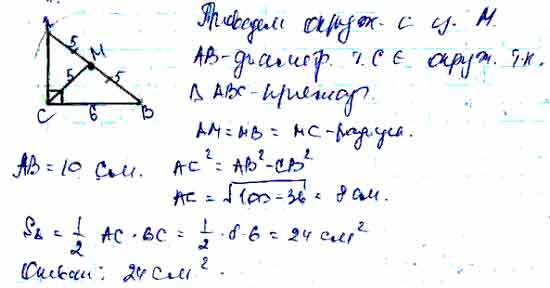 A
5
M
5
5
C
6
B
Проведем окруж. с ц. M.
AB-диаметр т. C ∈ окруж. т.к.
Δ ABC-прямоуг.
AM = MB = MC - радиусы.
AB = 10 см. AC² = AB² - CB²
AC = √100-36 = 8 см.
S△ = 1/2 AC · BC = 1/2 · 8 · 6 = 24 см²
24 см².